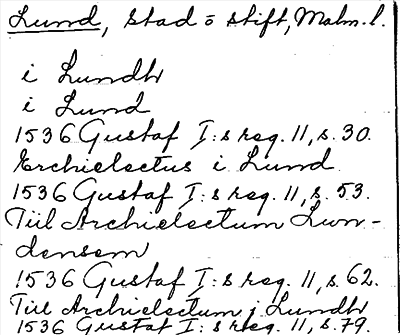 Lund, stad o stift, Malm. l.
i Lundh
i Lund
1536 Gustaf I:s reg. 11, s. 30.
Erchielectus i Lund
1536 Gustaf I:s reg. 11, s. 53.
Till Archielectum Lun-
densem
1536 Gustaf I:s reg. 11, s. 62.
Till Archielectum j Lundh
1536 Gustaf I:s reg. 11, s. 79.